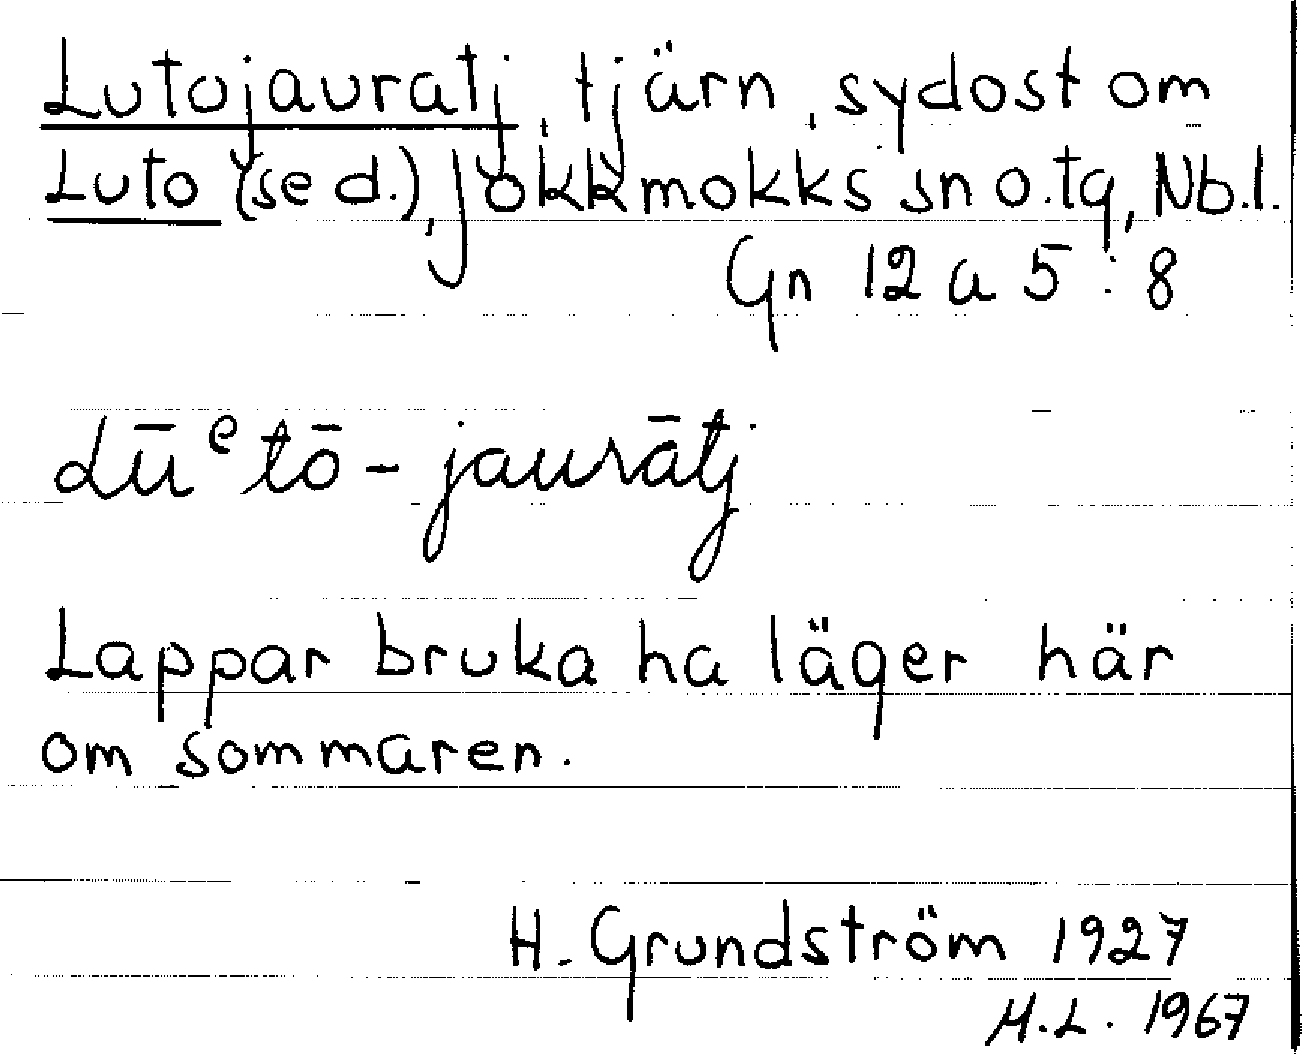 Lutojauratj, tjärn, sydost om
Luto (se d.), Jokkmokks sn o. tg, Nb. l.
Gn 12 a 5 : 8
Lūᵉtō-jaurātj
Lappar bruka ha läger här
om sommaren.
H. Grundström 1927
M.L. 1967